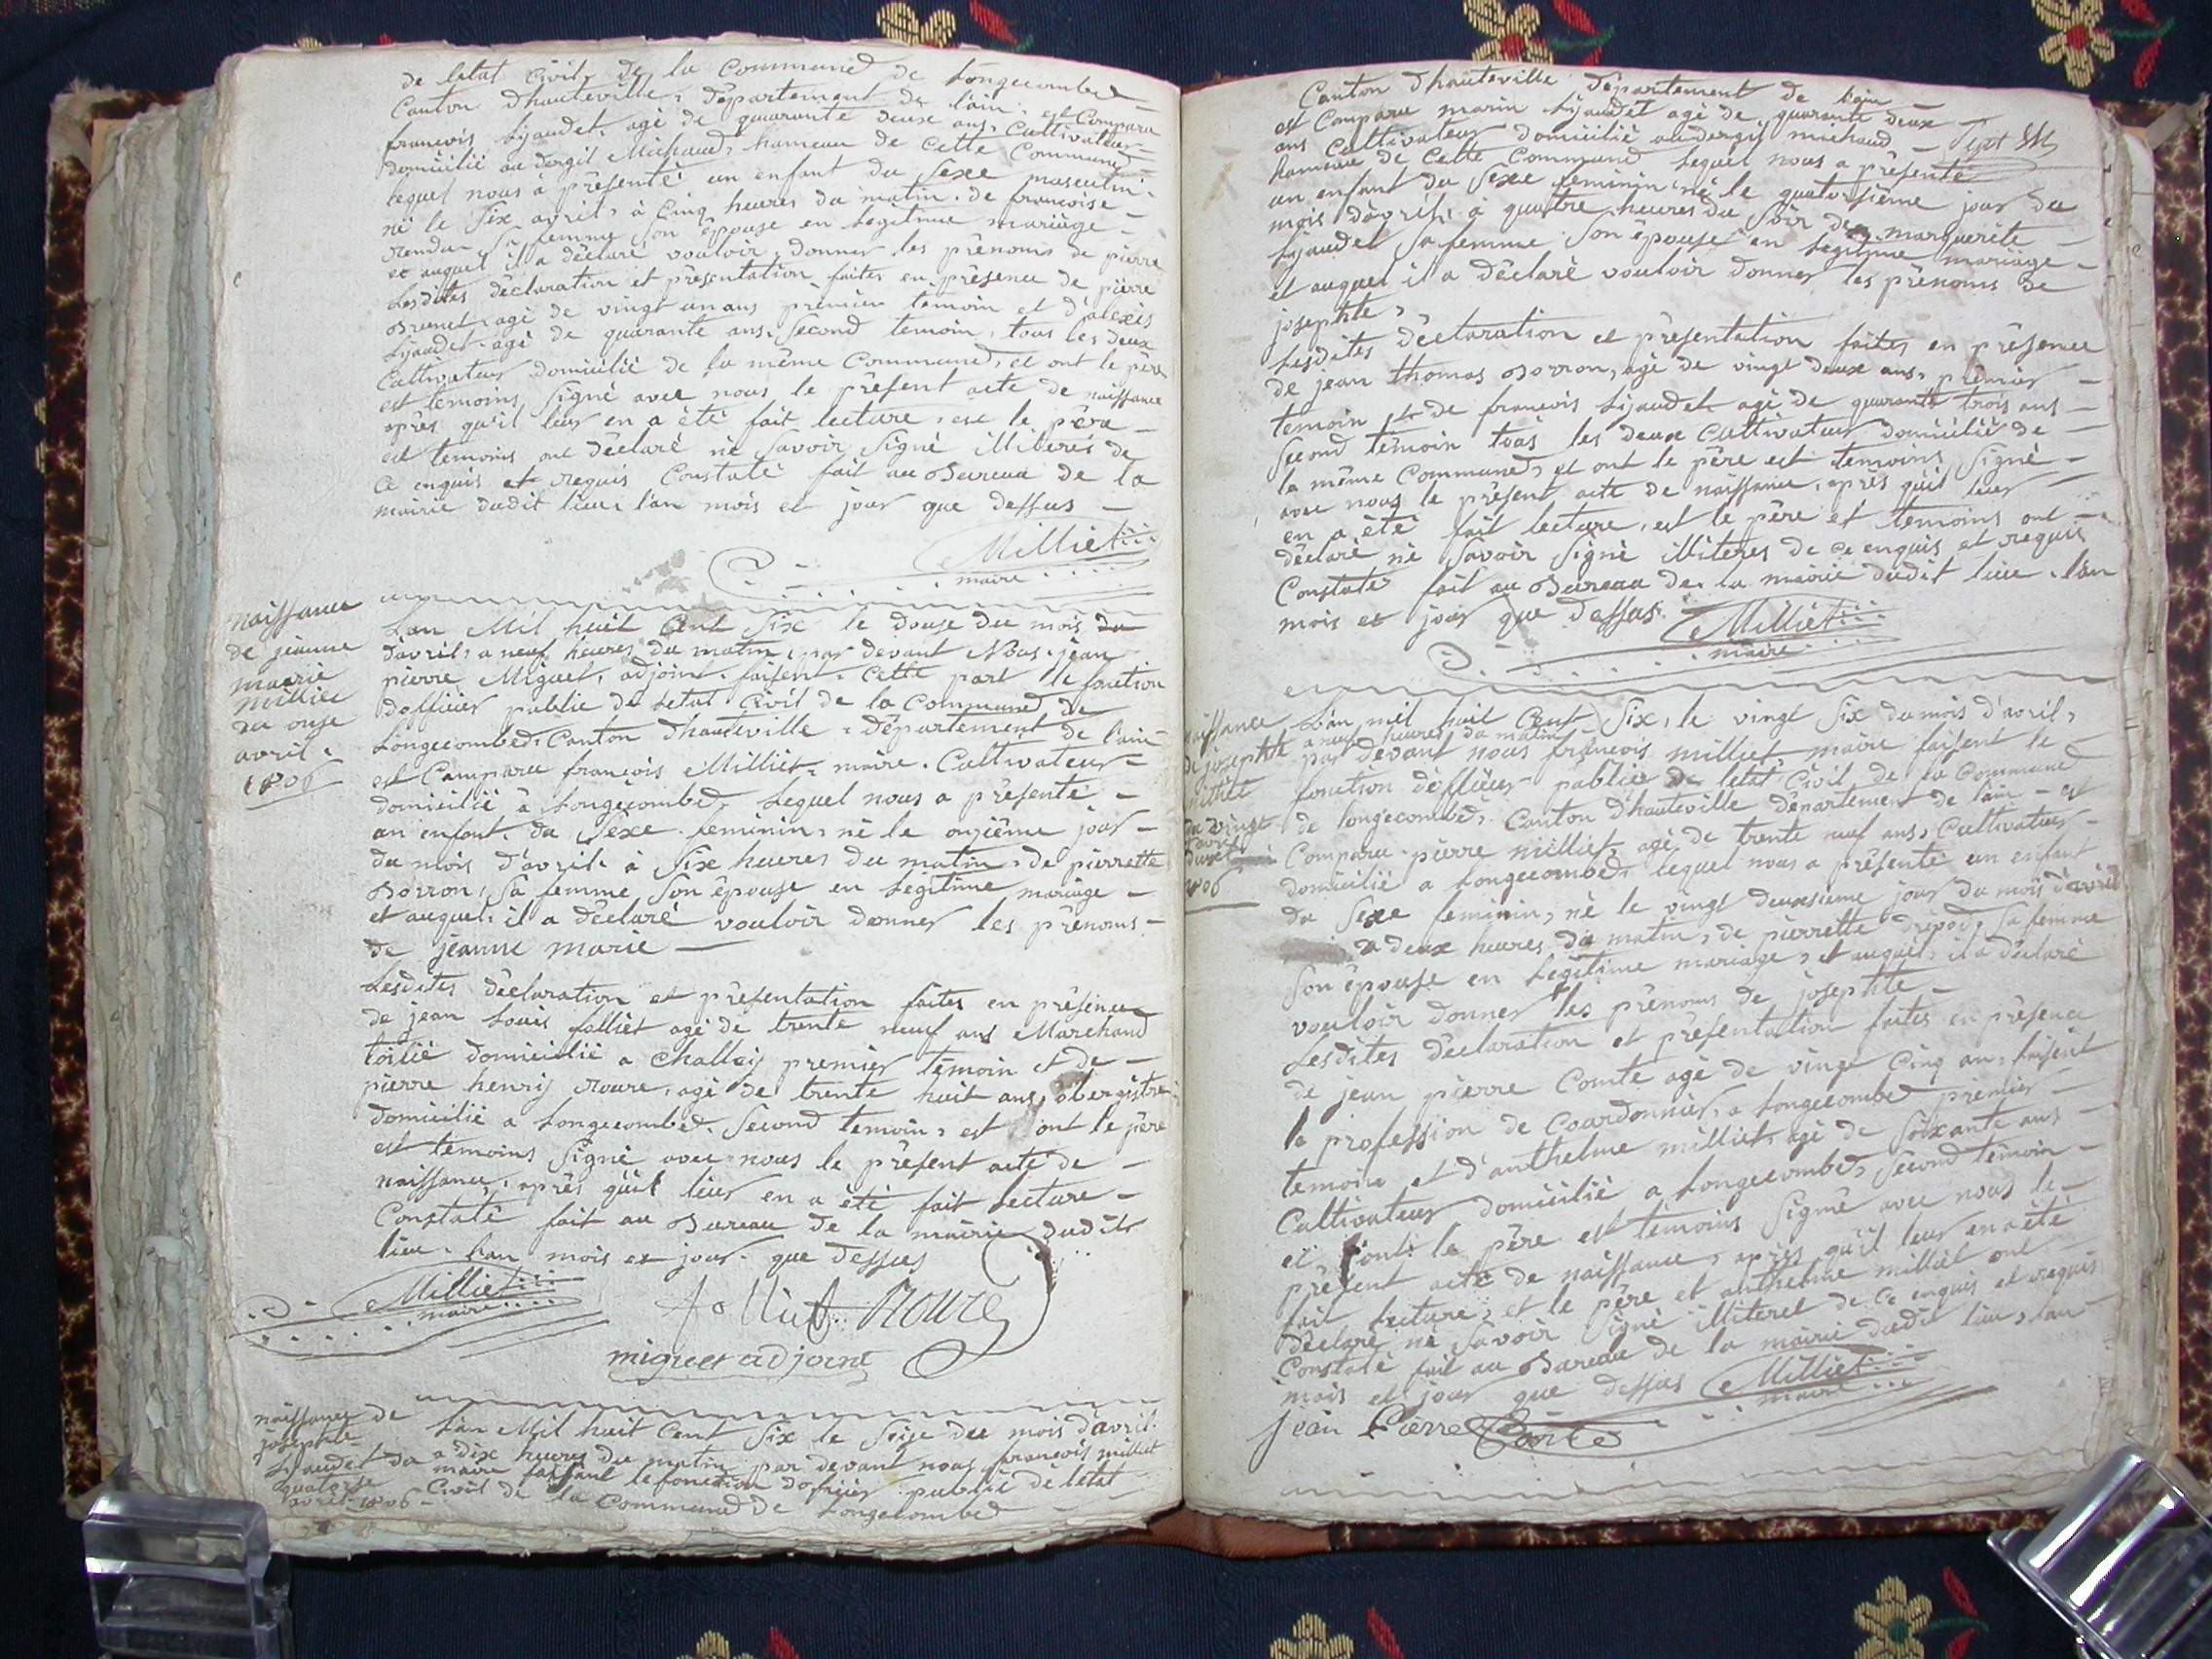 de letat Civil de la Commune de Longecombe
Canton d'hauteville, Département de l'ain, est Comparu
francois Lyaudet, agé de quarante deux ans, Cultivateur
domicilié au dergit Michaud, hameau de Cette Commune
lequel nous à présenté un enfant du Sexe masculin
né le Six avril, à Cinq heures du matin, de francoise
Sa femme Son épouse en Legitime mariage
et auquel il a déclaré vouloir donner les prénoms de pierre
Lesdites déclaration et présentation faites en présence de pierre
Brunet, agé de vingt un ans premier temoin et d'alexis
Lyaudet agé de quarante ans, Second temoin, tous les deux
Cultivateur domicilié de la même Commune, et ont le père
est temoins, Signé avec nous le présent acte de naissance
après qu'il leur en a été fait lecture, est le père
est temoins ont déclaré né Savoir Signé illiterés de
Ce enquis et requis Constaté fait au Bureau de la
mairie dudit lieu, l'an mois et jour que dessus
Milliet
maire
naissance
de jeanne
marie
milliet
du onze
avril
1806
L'an Mil huit Cent Six le douse du mois du
d'avril, a neuf heures du matin, par devant Nous, jean
pierre Miguet, adjoint, faisent, Cette part le fonction
d'officier public de Letat Civil de la Commune de
Longecombe, Canton d'hauteville, Département de l'ain
est Comparu françois Milliet, maire, Cultivateur
domicilié à Longecombe, Lequel nous a présenté
un enfant, du Sexe feminin, né le onzième jour
du mois d'avril à Six heures du matin, de pierrette
Borron, Sa femme Son épouse en Legitime mariage
et auquel, il a déclaré vouloir donner les prénoms
de jeanne marie
Lesdites déclaration et présentation faites en présence
de jean Louis folliet agé de trente neuf ans Marchand
domicilié a Challey premier témoin et de
pierre henry Roure, agé de trente huit ans, obergistre
domicilié a Longecombe, Second temoin, est ont le père
est temoins Signé avec nous le présent acte de
naissance, après qu'il leur en a été fait lecture
Constaté fait au Bureau de la mairie dudit
lieu, Lan mois et jour que dessus
Milliet
maire
folliet Roure
miguet adjoint
naissance de
josephte
Lyaudet du
quatorse
avril 1806
L'an Mil huit Cent Six le Seise du mois d'avril
a dix heures du matin par devant nous francois milliet
maire faissant le fonction d'officier public de létat
Civil de la Commune de Longecombe
Canton d'hauteville Département de l'ain
est Comparu marin Lyaudet agé de quarante deux
ans Cultivateur domicilié au dergis michaud
hameau de Cette Commune Lequel nous a présenté
un enfant du Sexe feminin né le quatorsième jour du
mois d'avril, à quattre heures du Soir de marguerite
Lyaudet Sa femme Son épouse en Legitime mariage
et auquel il a déclaré vouloir donner les prénoms de
josephte,
Lesdites déclaration et présentation faites en présence
de jean thomas Borron, agé de vingt deux ans, prémier
temoin et de francois Lyaudet agé de quarante trois ans
Second témoin tous les deux Cultivateur domicilié de
la même Commune, et ont le père est temoins Signé
avec nous le présent acte de naissance, après qu'il leur
en a été fait lecture, est le père et temoins ont
déclaré né Savoir Signé illiteres de ce enquis et requis
Constaté fait au Bureau de la mairie dudit lieu, l'an
mois et jour que dessus.
Milliet
maire
naissance
de josephte
milliet
du vingt
1806
L'an mil huit Cent Six, le vingt Six du mois d'avril,
a neuf heures du matin
par devant nous françois milliet maire faisent le
fonction d'efficier public de letat Civil de la Commune
de longecombe, Canton d'hauteville Département de l'ain et
Comparu pierre milliet, agé de trente neuf ans, Cultivateur
domicilié a Longecombe, lequel nous a présenté un enfant
du Sexe feminin, né le vingt deuxsieme jour du mois d'avril
a deux heures du matin, de pierrette drevod, Sa femme
Son épouse en Legitime mariage, et auquel, il a déclaré
vouloir donner les prénoms de josephte
Lesdites déclaration et présentation faites en présence
de jean pierre Comte agé de vingt Cinq an, faisent
la profession de Courdonnier, a Longecombe premier
temoin et d'anthelme milliet, agé de Soixante ans
Cultivateur domicilié a Longecombe, Second témoin
et ont le père est témoins Signé avec nous le
présent acte de naissance, après qu'il leur en a été
fait lecture, et le père et anthelme milliet ont
déclaré né Savoir Signé illiteret de Ce enquis et requis
Constaté fait au Bureau de la mairie dudit lieu, l'an
mois et jour que dessus
Milliet
maire
jean Pierre Comte